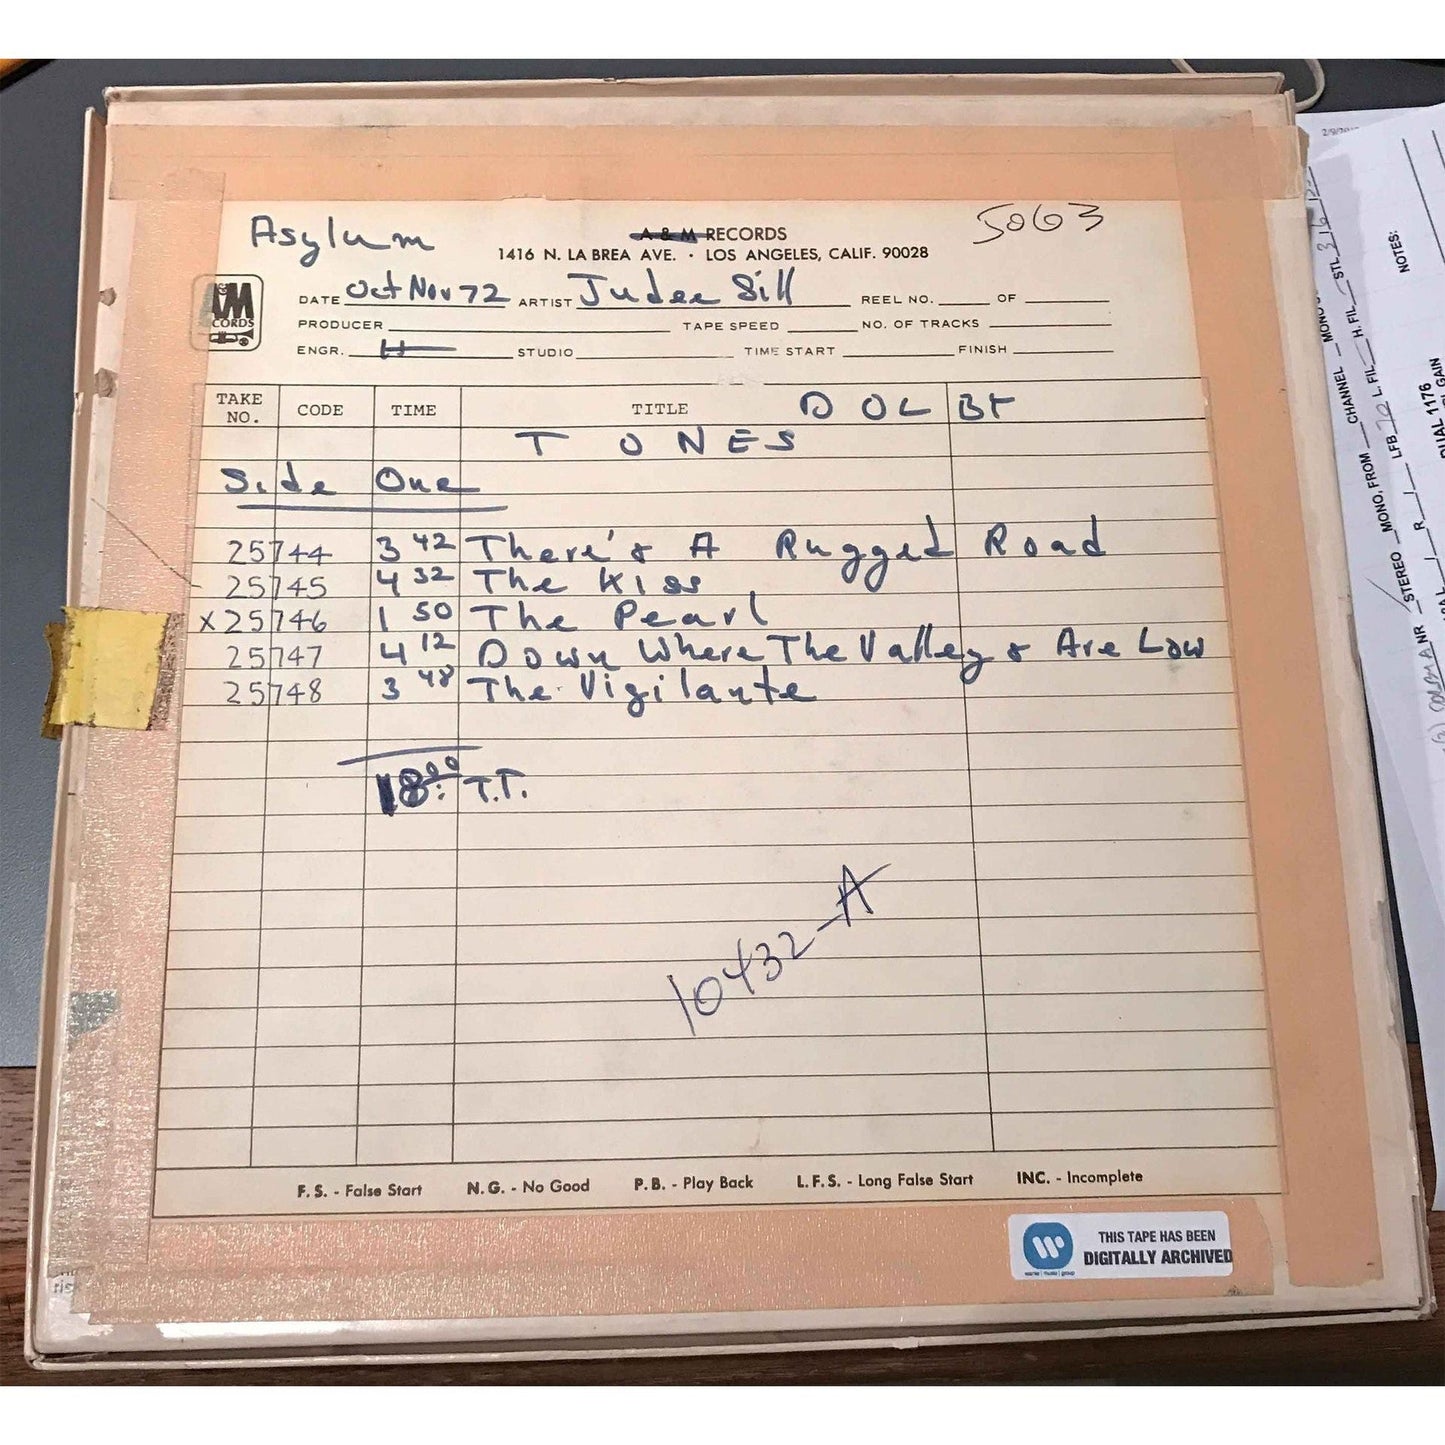 Asylum
A & M RECORDS
5063
1416 N. LA BREA AVE. · LOS ANGELES, CALIF. 90028
A&M
RECORDS
DATE Oct Nov 72 ARTIST Judee Sill REEL NO. OF
PRODUCER TAPE SPEED NO. OF TRACKS
ENGR. STUDIO TIME START FINISH
TAKE NO. CODE TIME TITLE DOLBY
TONES
Side One
25744 3 42 There's A Rugged Road
25745 4 32 The Kiss
x 25746 1 50 The Pearl
25747 4 12 Down Where The Valleys Are Low
25748 3 48 The Vigilante
18:00 T.T.
10432-A
F. S. - False Start N. G. - No Good P. B. - Play Back L. F. S. - Long False Start INC. - Incomplete
THIS TAPE HAS BEEN
DIGITALLY ARCHIVED
warner music group
NOTES:
STL
CHANNEL
MONO, FROM
STEREO
LFB L. FIL H. FIL
DUAL 1176
GAIN